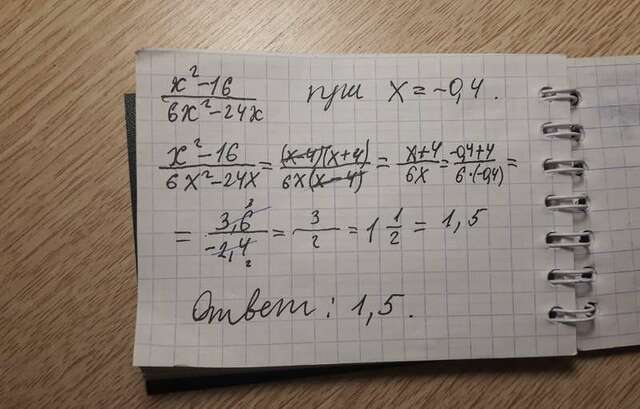 x²-16/6x²-24x при x=-0,4.
x²-16/6x²-24x = (x-4)(x+4)/6x(x-4) = x+4/6x = -0,4+4/6·(-0,4) =
= 3,6 3/-2,4 2 = 3/2 = 1 1/2 = 1,5
Ответ: 1,5.